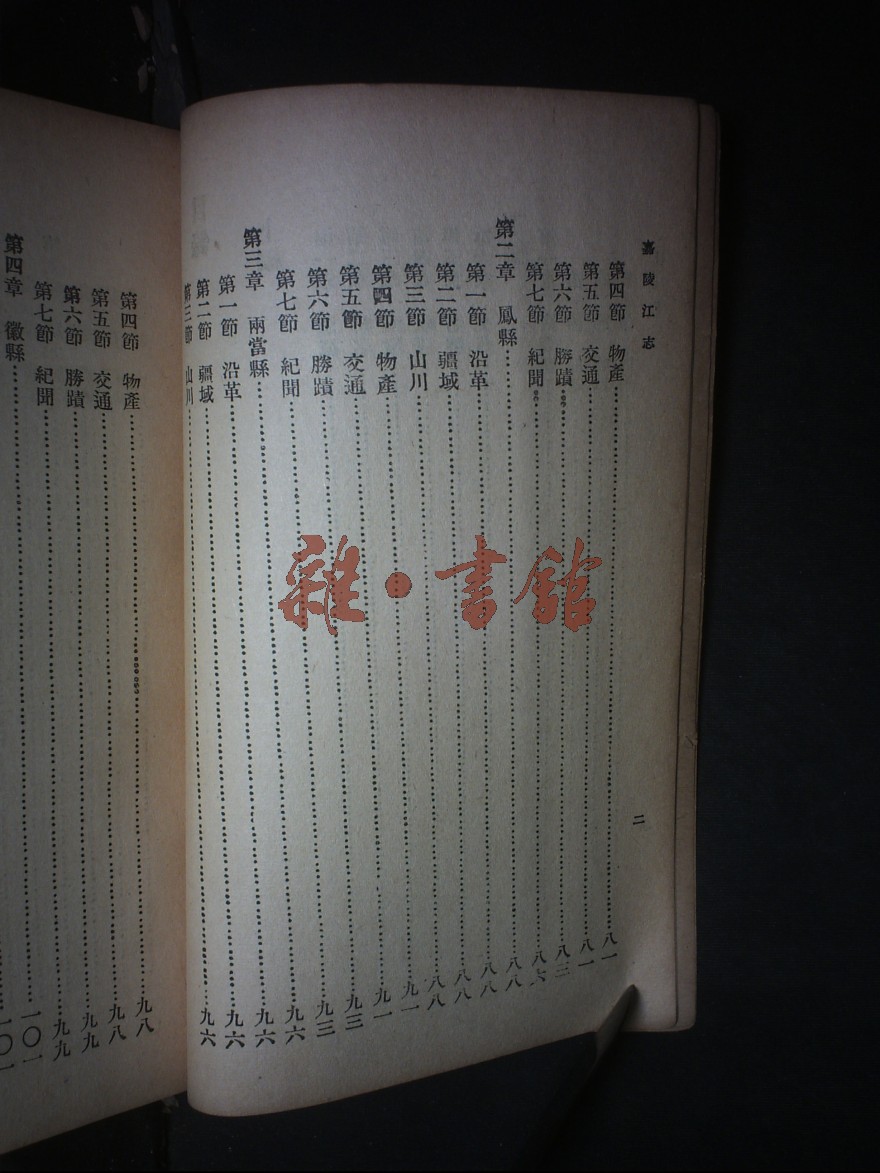 嘉陵江志 二
第四節 物產……八一
第五節 交通……八一
第六節 勝蹟……八三
第七節 紀聞……八六
第二章 鳳縣……八八
第一節 沿革……八八
第二節 疆域……八八
第三節 山川……八八
第四節 物產……九一
第五節 交通……九一
第六節 勝蹟……九三
第七節 紀聞……九三
第三章 兩當縣……九六
第一節 沿革……九六
第二節 疆域……九六
第三節 山川……九六
第四節 物產……九八
第五節 交通……九八
第六節 勝蹟……九九
第七節 紀聞……九九
第四章 徽縣……一〇一
一〇一
雜·書館